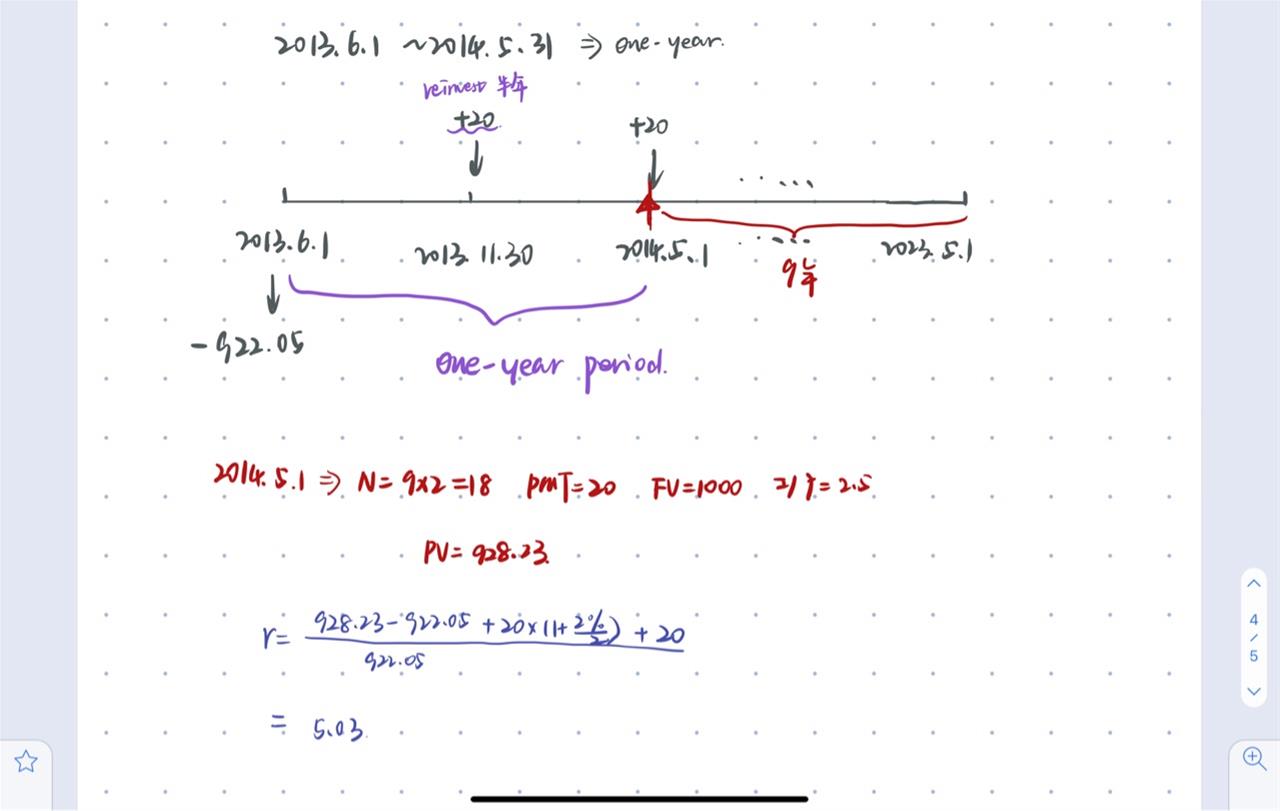 2013.6.1 ~2014.5.31 ⇒ one-year.
reinvest 半年
+20 +20
2013.6.1 2013.11.30 2014.5.1 2023.5.1
9年
-922.05
one-year period.
2014.5.1 ⇒ N=9×2=18 PMT=20 FV=1000 =2.5
PV=928.23.
r= 928.23-922.05+20×(1+2%/2)+20
922.05
= 5.03.
4
/
5